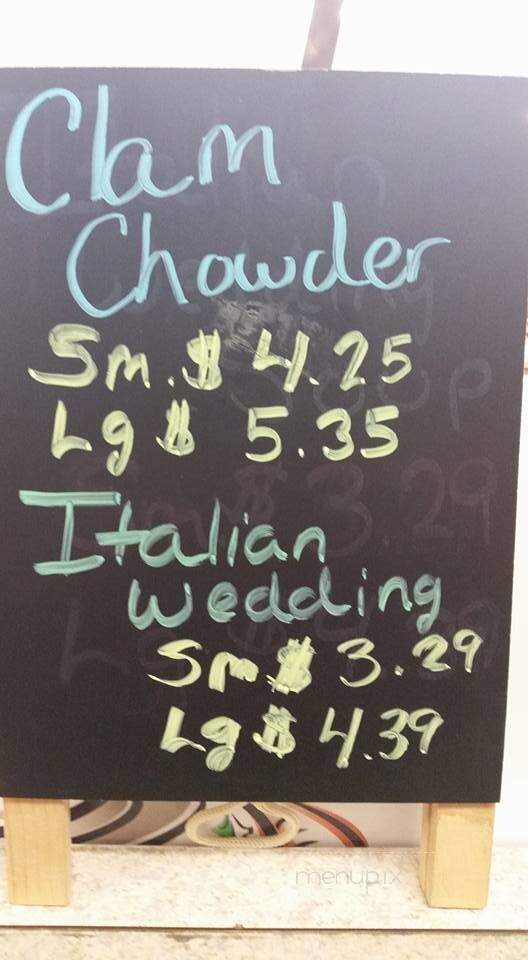 Clam
Chowder
Sm. $ 4.25
Lg $ 5.35
Italian
wedding
Sm $ 3.29
Lg $ 4.39
menupix